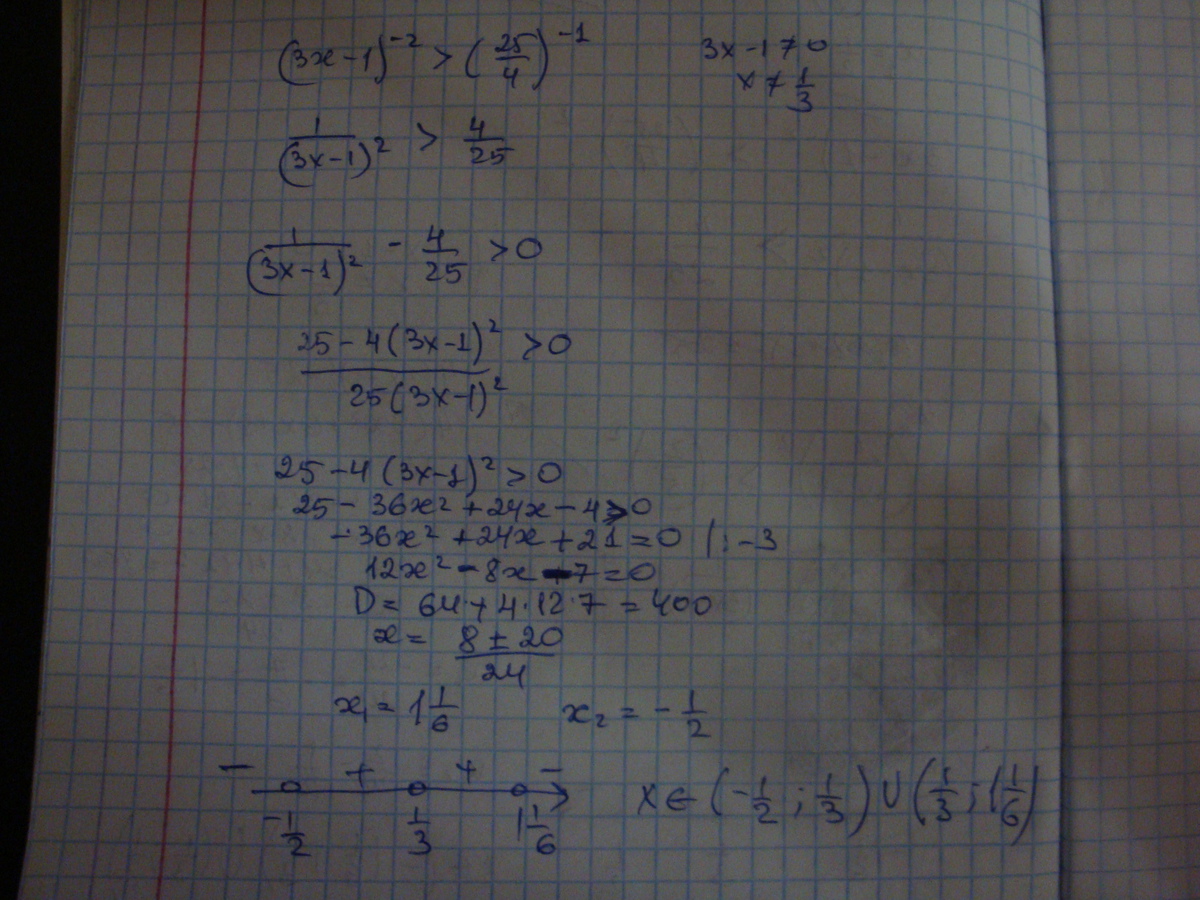 (3x-1)⁻² > (25/4)⁻¹
3x-1≠0
x≠1/3
1/(3x-1)² > 4/25
1/(3x-1)² - 4/25 >0
(25-4(3x-1)²)/(25(3x-1)²) >0
25-4(3x-1)²>0
25-36x²+24x-4>0
-36x²+24x+21=0 |:-3
12x²-8x-7=0
D=64+4·12·7=400
x=(8±20)/24
x₁=1 1/6 x₂=-1/2
- + + -
-1/2 1/3 1 1/6
x∈(-1/2;1/3)∪(1/3;1 1/6)